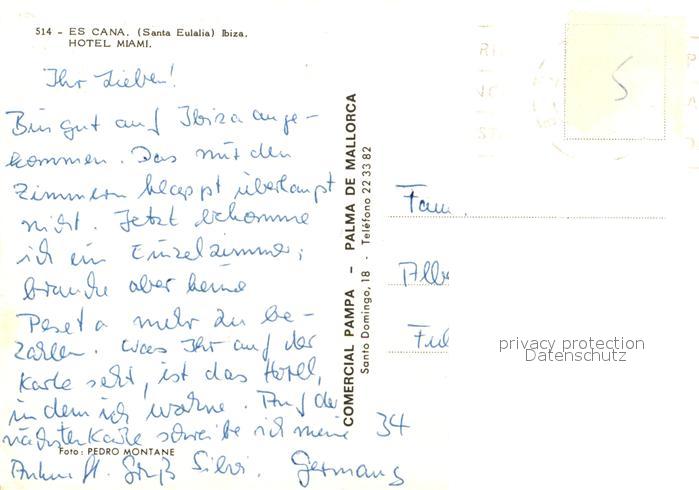 514 - ES CANA. (Santa Eulalia) Ibiza.
HOTEL MIAMI.
Ihr Lieben!
Bin gut auf Ibiza ange-
kommen. Das mit den
Zimmern klappt überhaupt
nicht. Jetzt bekomme
ich ein Einzelzimmer;
brauche aber keine
Peseta mehr zu be-
zahlen. Was Ihr auf der
Karte seht, ist das Hotel,
in dem ich wohne. Auf der
nächsten Karte schreibe ich meine
Foto: PEDRO MONTANE
Gruß Silvi.
COMERCIAL PAMPA - PALMA DE MALLORCA
Santo Domingo, 18 - Teléfono 22 33 82
S
Fam.
privacy protection
Datenschutz
34
Germany